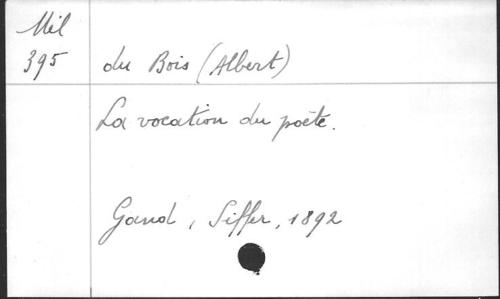 Mél
395
du Bois (Albert)
La vocation du poète.
Gand, Siffer, 1892